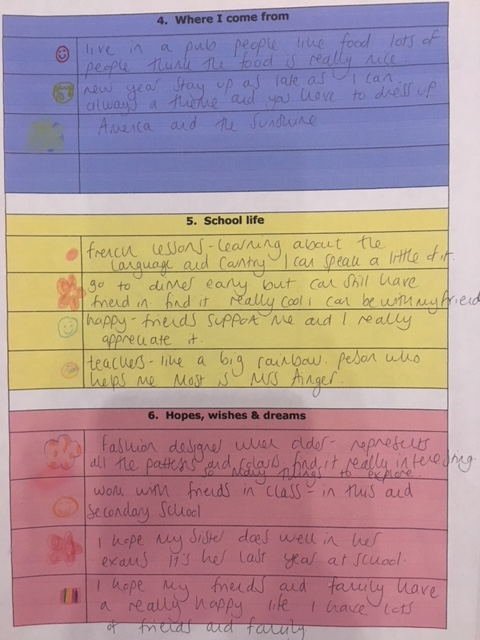 4. Where I come from
live in a pub people like food lots of
people think the food is really nice
new year stay up as late as I can.
always a theme and you have to dress up
America and the Sunshine
5. School life
french lessons - learning about the
language and country I can speak a little of it.
go to dinner early but can still have
friend in find it really cool i can be with my friend
happy - friends support me and I really
appreciate it.
teachers - like a big rainbow. person who
helps me most is Mrs Ainger.
6. Hopes, wishes & dreams
fashion designer when older - represents
all the patterns and colours. find it really interesting.
so many things to explore
work with friends in class - in this and
Secondary School
I hope my sister does well in her
exams it's her last year at school.
I hope my friends and family have
a really happy life I have lots
of friends and family